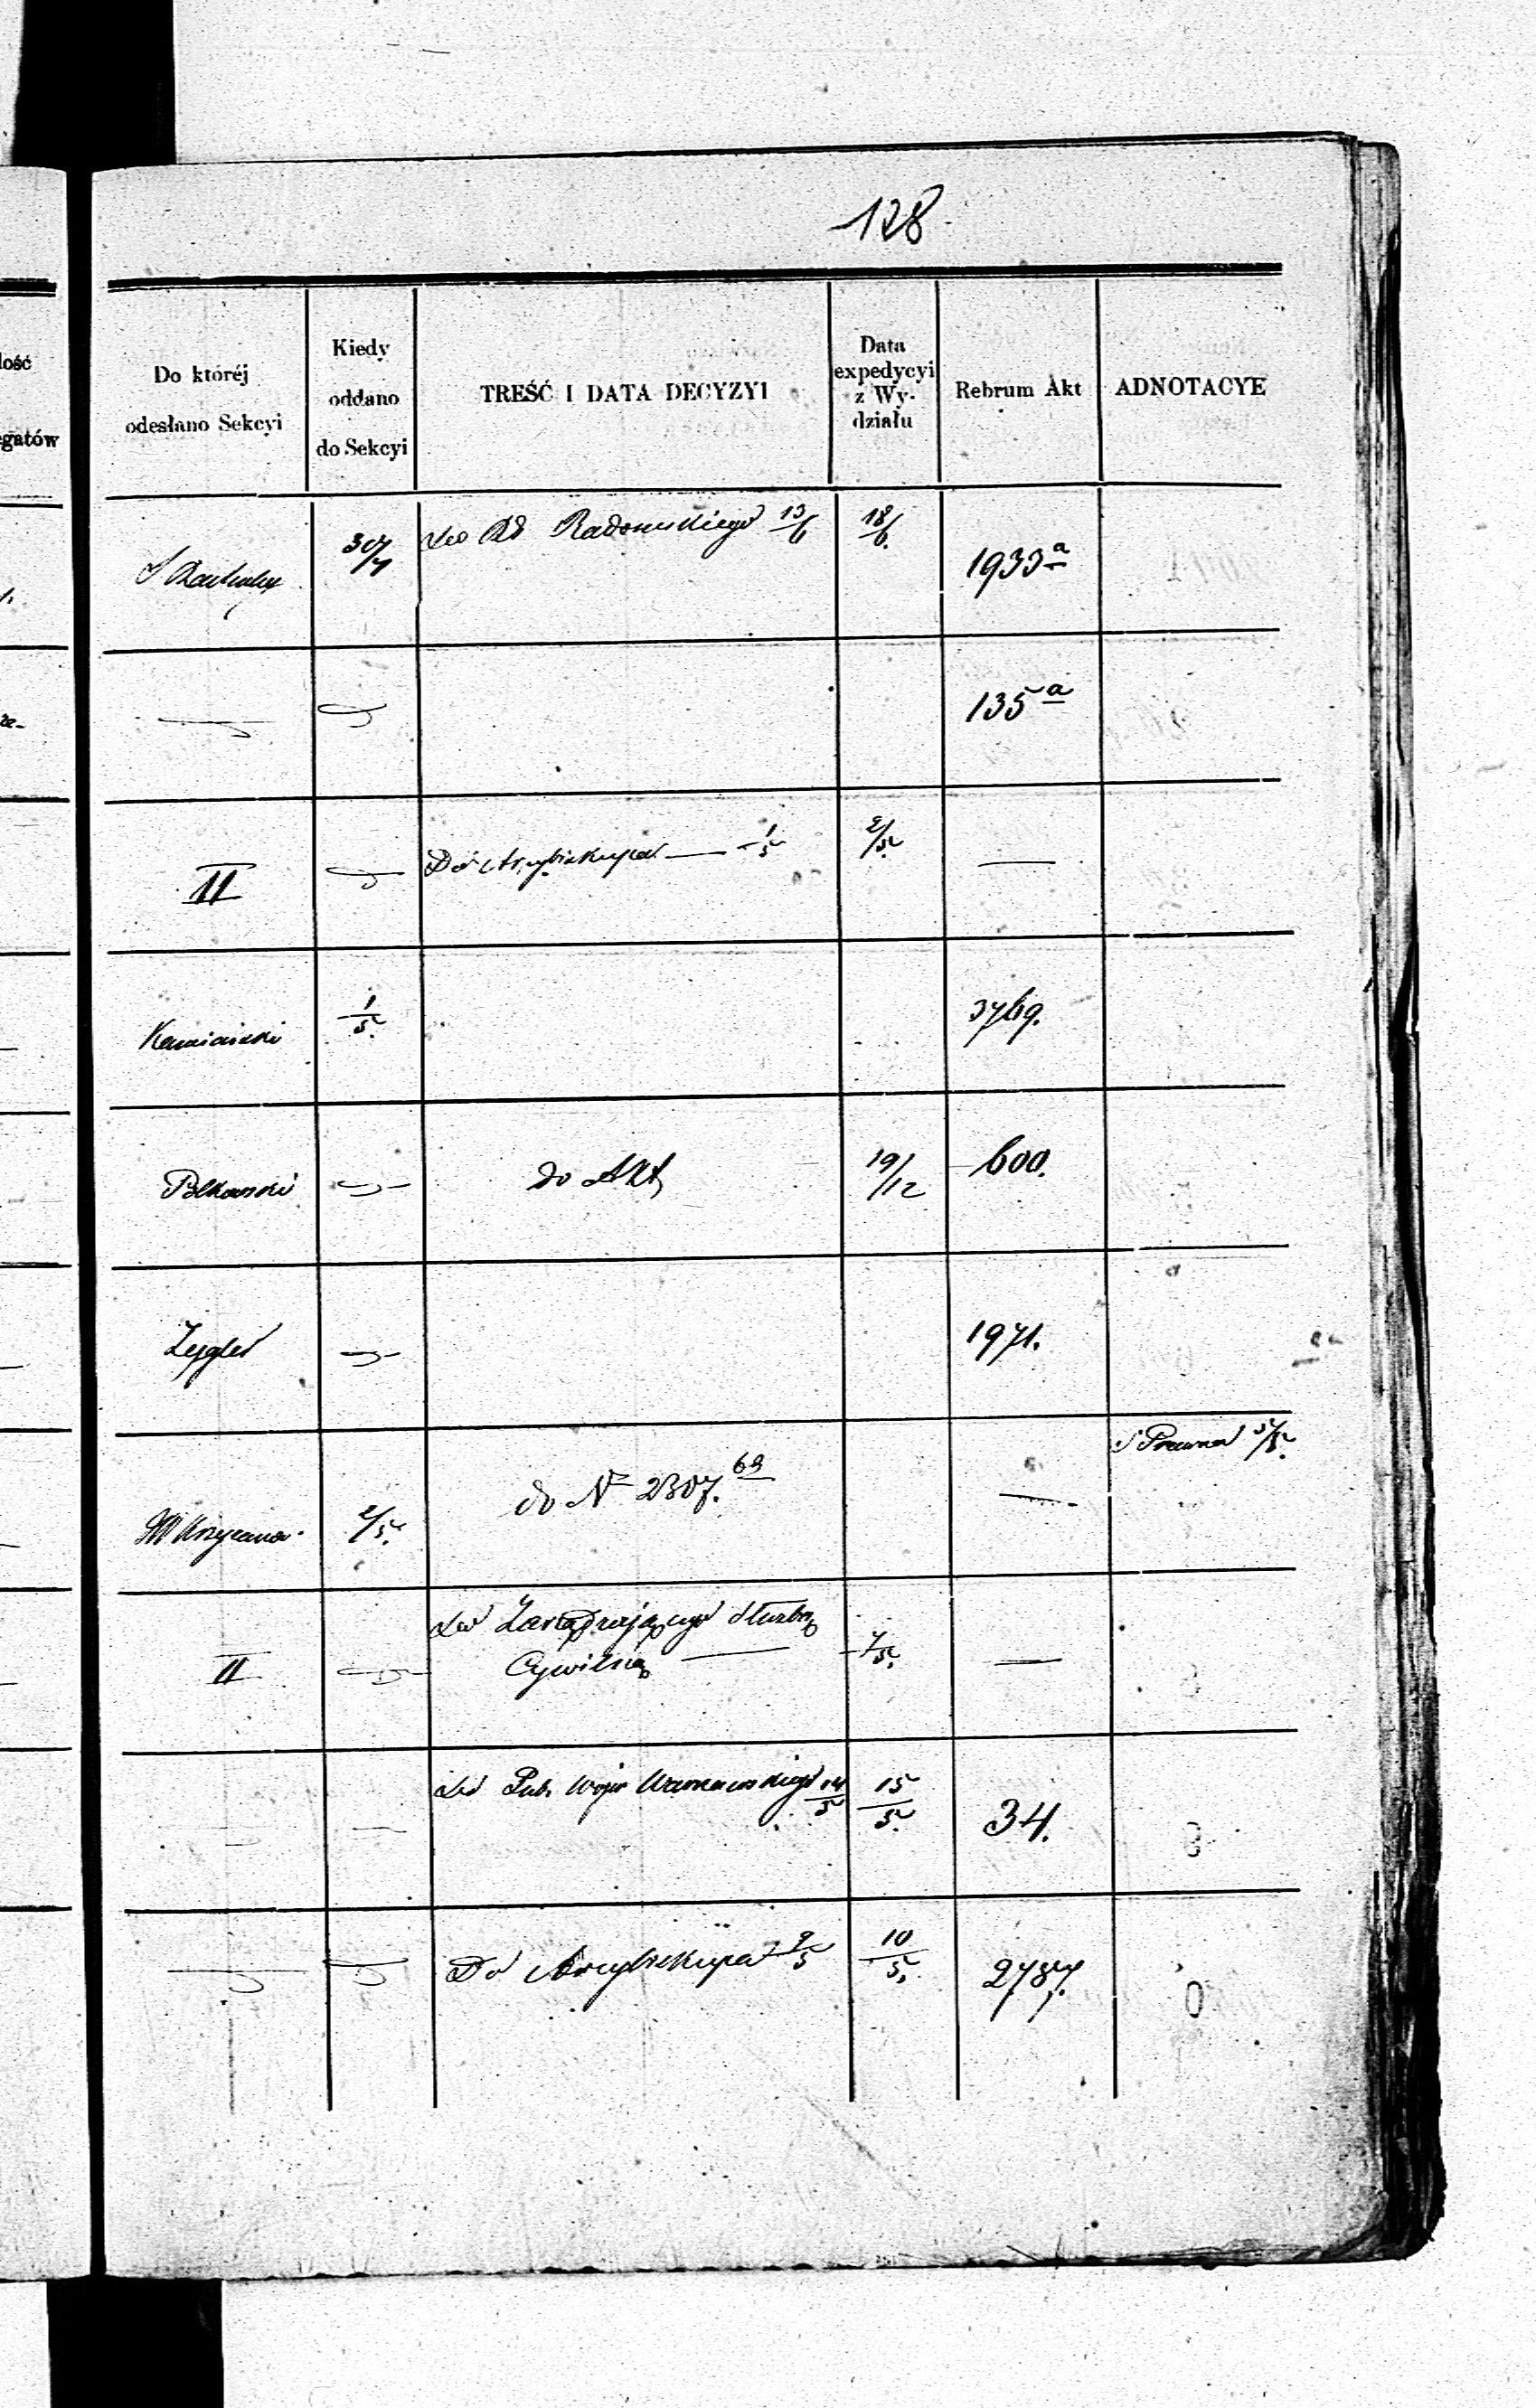 128
lość
egatów
Do któréj
odesłano Sekcyi
Kiedy
oddano
do Sekcyi
TREŚĆ I DATA DECYZYI
Data
expedycyi
z Wy-
działu
Rebrum Akt
ADNOTACYE
30/4
Do Rd Radomskiego 13/6
18/6.
1933 a
135 a
II
Do Arcybiskupa — 1/5
2/5.
—
Kamiański
1/5.
3769.
do Akt
19/12
600.
Zeygler
1971.
2/5.
do N 2307. 63
—
S Prawna 5/5.
II
Do Zarządzającego służbą
Cywilną —
7/5.
—
Do Gub. Wojs Warszawskiego 14/5
15/5.
34.
Do Arcybiskupa 9/5
10/5.
2787.